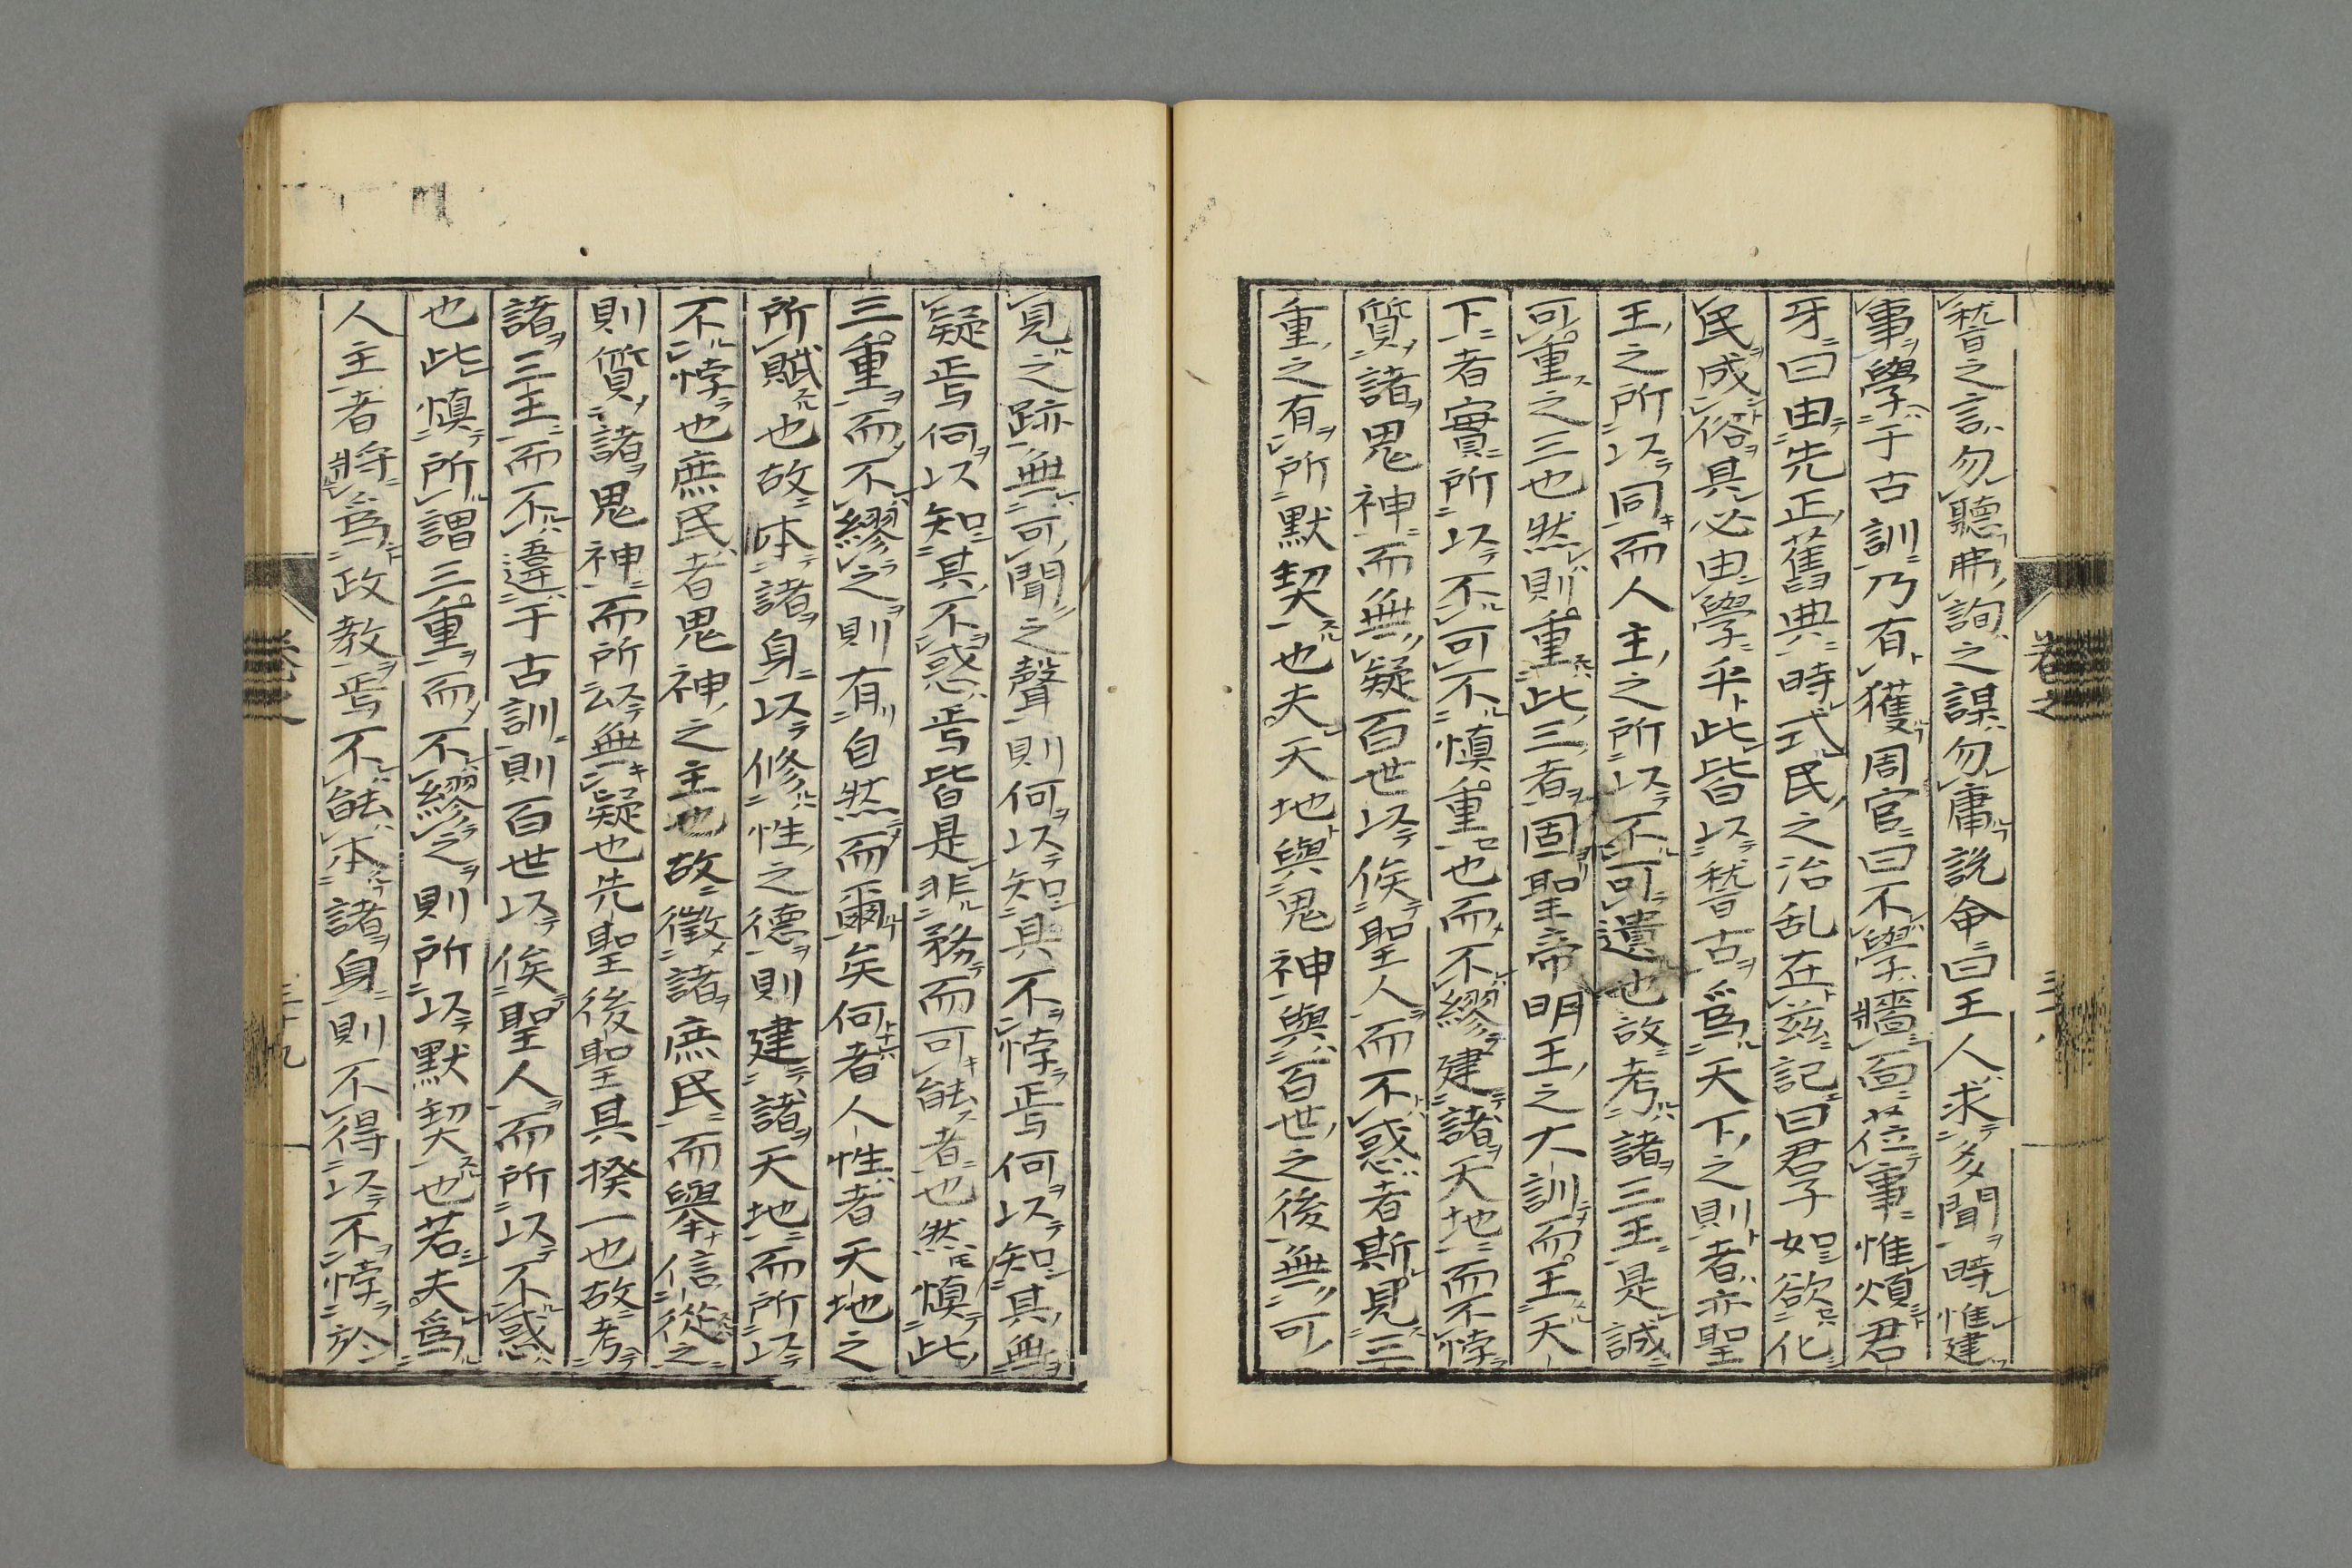 稽之言勿聽弗詢之謀勿庸說命曰王人求多聞時惟建
事學于古訓乃有獲周官曰不學牆面莅事惟煩君
牙曰由先正舊典時式民之治乱在茲記曰君子如欲化
民成俗其必由學乎此皆以稽古爲天下之則者亦聖
王之所以同而人主之所以不可遺也故考諸三王是誠
可重之三也然則重此三者固聖帝明王之大訓而王天
下者實所以不可不慎重也而不繆建諸天地而不悖
質諸鬼神而無疑百世以俟聖人而不惑者斯見三
重之有所默契也夫天地與鬼神與百世之後無可
卷之
見之跡無可聞之聲則何以知其不悖焉何以知其無
疑焉何以知其不惑焉皆是非務而可能者也然慎此
三重而不繆之則有自然而爾矣何者人性者天地之
所賦也故本諸身以修性之德則建諸天地而所以
不悖也庶民者鬼神之主也故徵諸庶民而舉信從之
則質諸鬼神而所以無疑也先聖後聖其揆一也故考
諸三王而不違于古訓則百世以俟聖人而所以不惑
也此慎所謂三重而不繆之則所以默契也若夫爲
人主者將爲政教焉不能本諸身則不得以不悖於
三十九